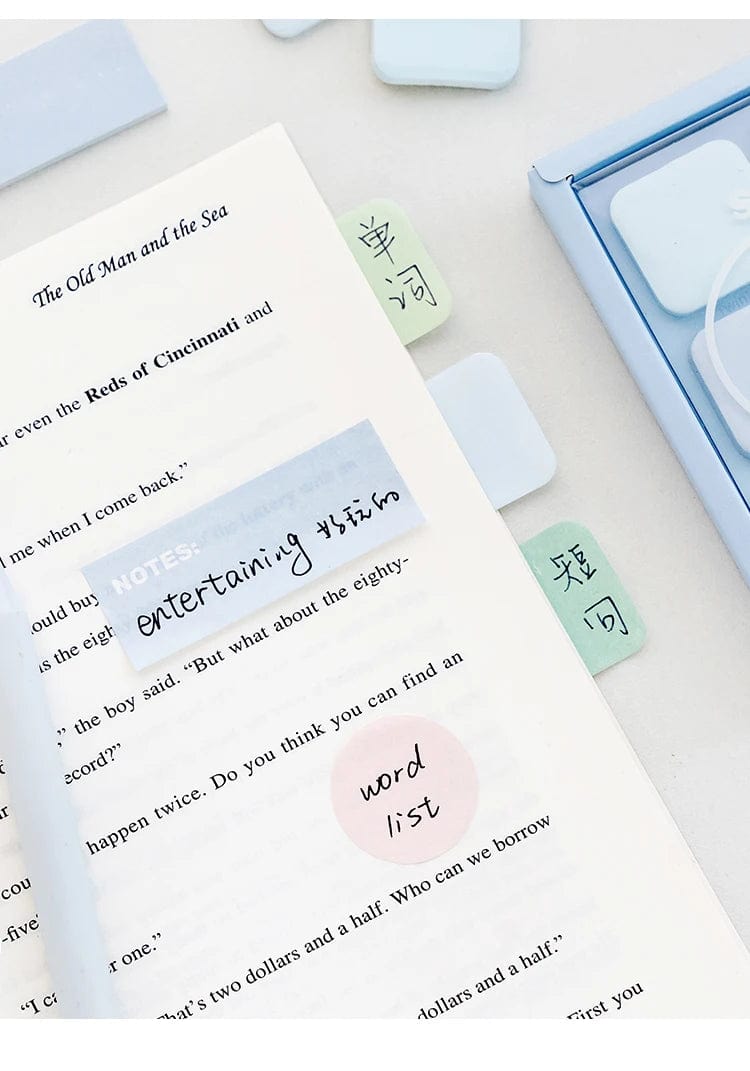 The Old Man and the Sea
even the Reds of Cincinnati and
me when I come back.”
NOTES:
entertaining 好玩的
ould buy
is the eigh
the eighty-
,” the boy said. “But what about
ecord?”
happen twice. Do you think you can find an
cou
-five
r one.”
hat’s two dollars and a half. Who can we borrow
“I ca
dollars and a half.”
First you
单
词
短
回
word
list